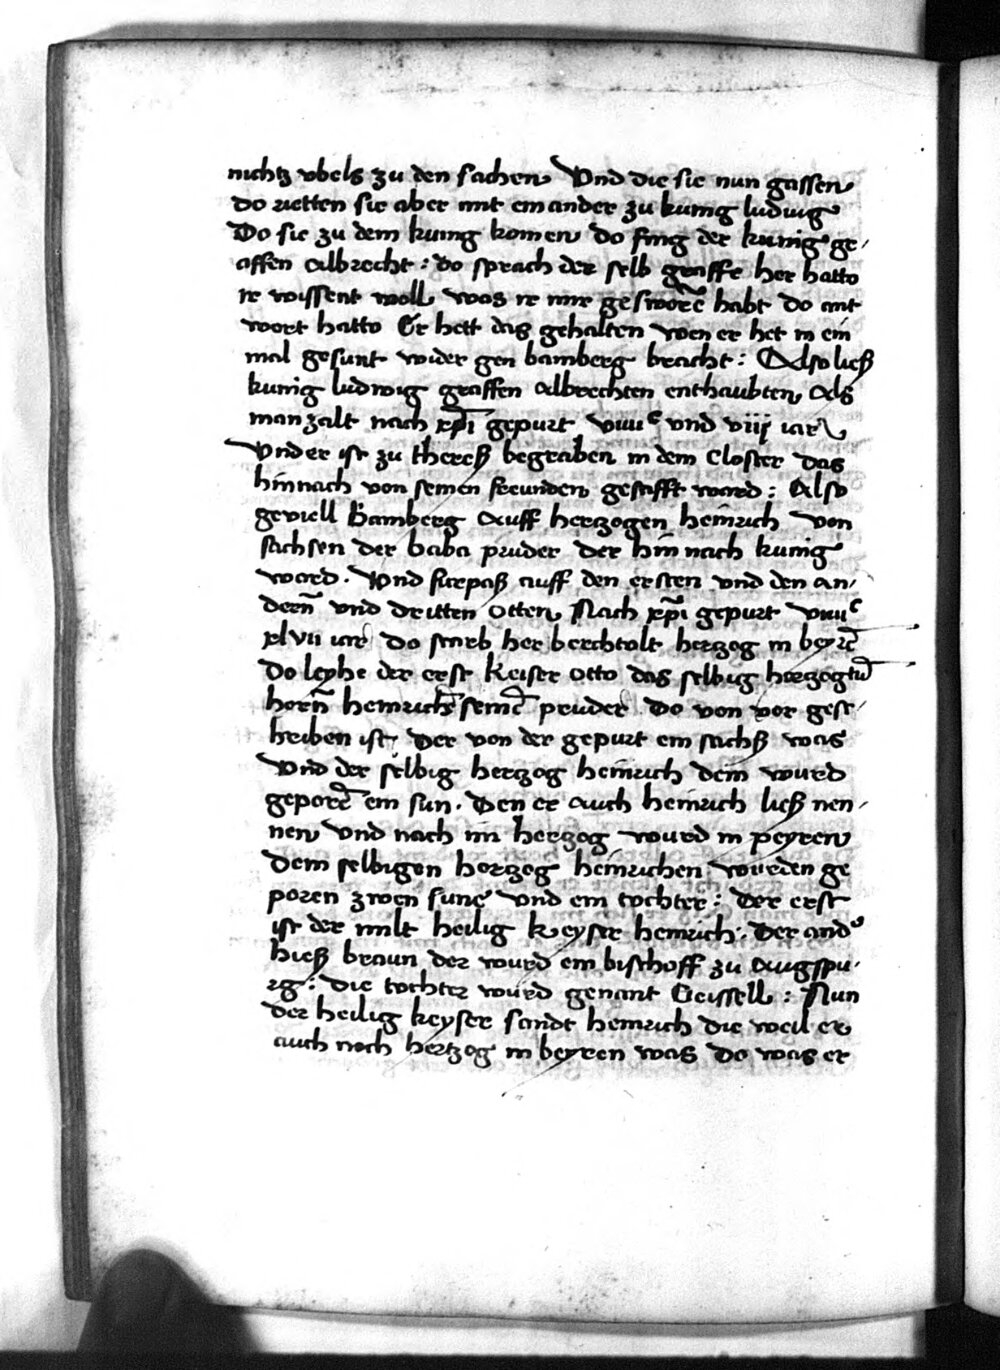 nichtz vbels zu den sachen Vnd die sie nun gassen
do rietten sie aber mit einander zu kunig ludwig
Do sie zu dem kunig komen do fing der kunig gr,
affen Albrecht : do sprach der selb graffe her hatto
ir wissent woll was ir mir gesworē habt do ant
wort hatto Er hett das gehalten wen er het in ein
mal gesunt wider gen bamberg bracht : Also ließ
kunig ludwig graffen Albrechten enthaubten Als
man zalt nach xp̄i gepurt viiiiᶜ vnd viij iar
Vnd er ist zu thereß begraben in dem Closter das
hinnach von seinen freunden gestifft ward : Also
geviell Bamberg Auff hertzogen heinrich von
sachsen der baba pruder der hin nach kunig
ward . Vnd furpaß auff den ersten vnd den an,
dern̄ vnd dritten Otten Nach xp̄i gepurt viiiiᶜ
xlvii iar do starb her berchtolt hertzog in beyrē
Do leyhe der erst keiser Otto das selbig hertzogtū
horn̄ heinrich seinē pruder Do von vor gesc,
hriben ist Der von der gepurt ein sachß was
Vnd der selbig hertzog heinrich dem wurd
geporē ein sun . Den er auch heinrich ließ nen,
nen Vnd nach im hertzog wurd in peyren
Dem selbigen hertzog heinrichen wurden ge
poren zwen sune vnd ein tochter : Der erst
ist der milt heilig keyser heinrich : Der and'
hieß braun der wurd ein bischoff zu Augspu,
rg : die tochter wurd genant Geissell : Nun
der heilig keyser sandt heinrich die weil er
auch noch hertzog in beyren was Do was er